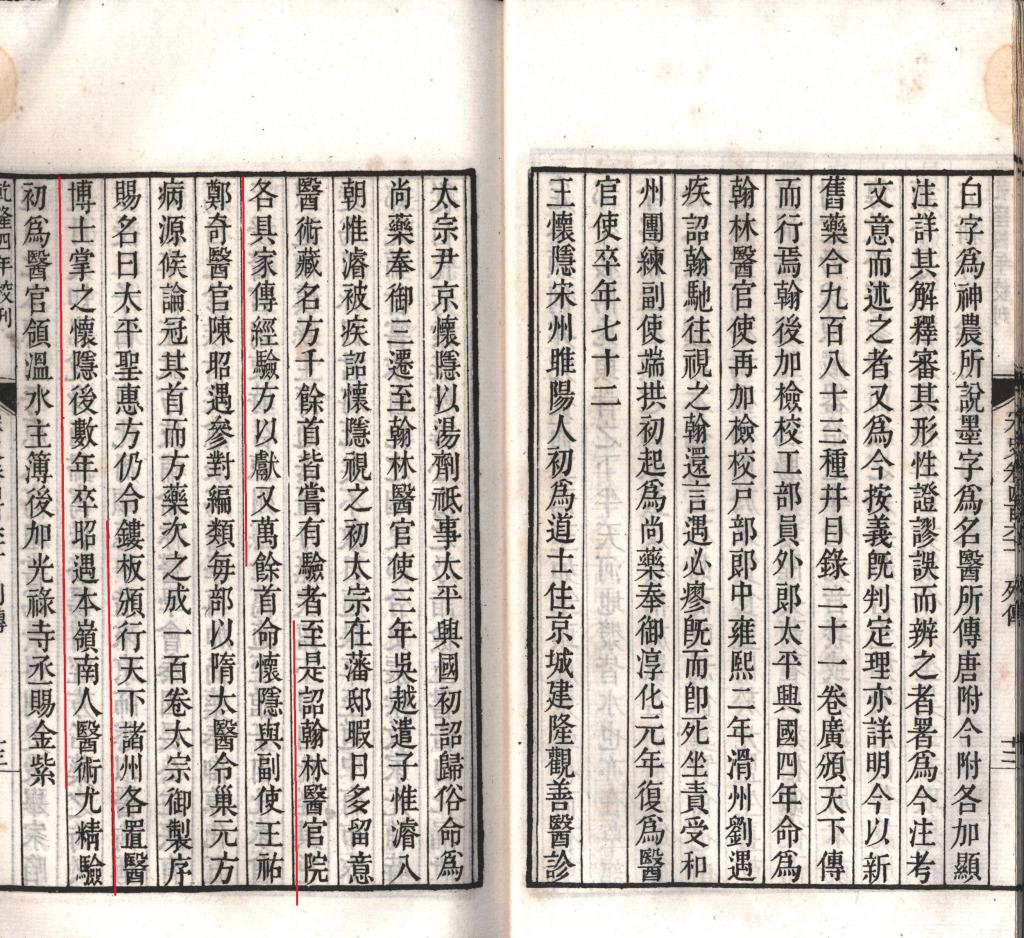 白字為神農所說墨字為名醫所傳唐附今附各加顯
注詳其解釋審其形性證謬誤而辨之者署為今注考
文意而述之者又為今按義旣判定理亦詳明今以新
舊藥合九百八十三種幷目錄二十一卷廣頒天下傳
而行焉翰後加檢校工部員外郎太平興國四年命為
翰林醫官使再加檢校戸部郎中雍熙二年滑州劉遇
疾詔翰馳往視之翰還言遇必瘳旣而卽死坐責受和
州團練副使端拱初起為尚藥奉御淳化元年復為醫
官使卒年七十二
王懷隱宋州睢陽人初為道士住京城建隆觀善醫診
太宗尹京懷隱以湯劑祇事太平興國初詔歸俗命為
尚藥奉御三遷至翰林醫官使三年吳越遣子惟濬入
朝惟濬被疾詔懷隱視之初太宗在藩邸暇日多留意
醫術藏名方千餘首皆嘗有驗者至是詔翰林醫官院
各具家傳經驗方以獻又萬餘首命懷隱與副使王祐
鄭奇醫官陳昭遇參對編類每部以隋太醫令巢元方
病源候論冠其首而方藥次之成一百卷太宗御製序
賜名曰太平聖惠方仍令鏤板頒行天下諸州各置醫
博士掌之懷隱後數年卒昭遇本嶺南人醫術尤精驗
初為醫官領溫水主簿後加光祿寺丞賜金紫
乾隆四年校刊